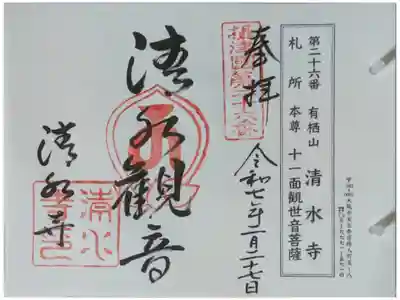 第二十六番 有栖山 清水寺
札所 本尊 十一面観世音菩薩
奉拝
令和七年二月二十七日
清水観音
清水寺